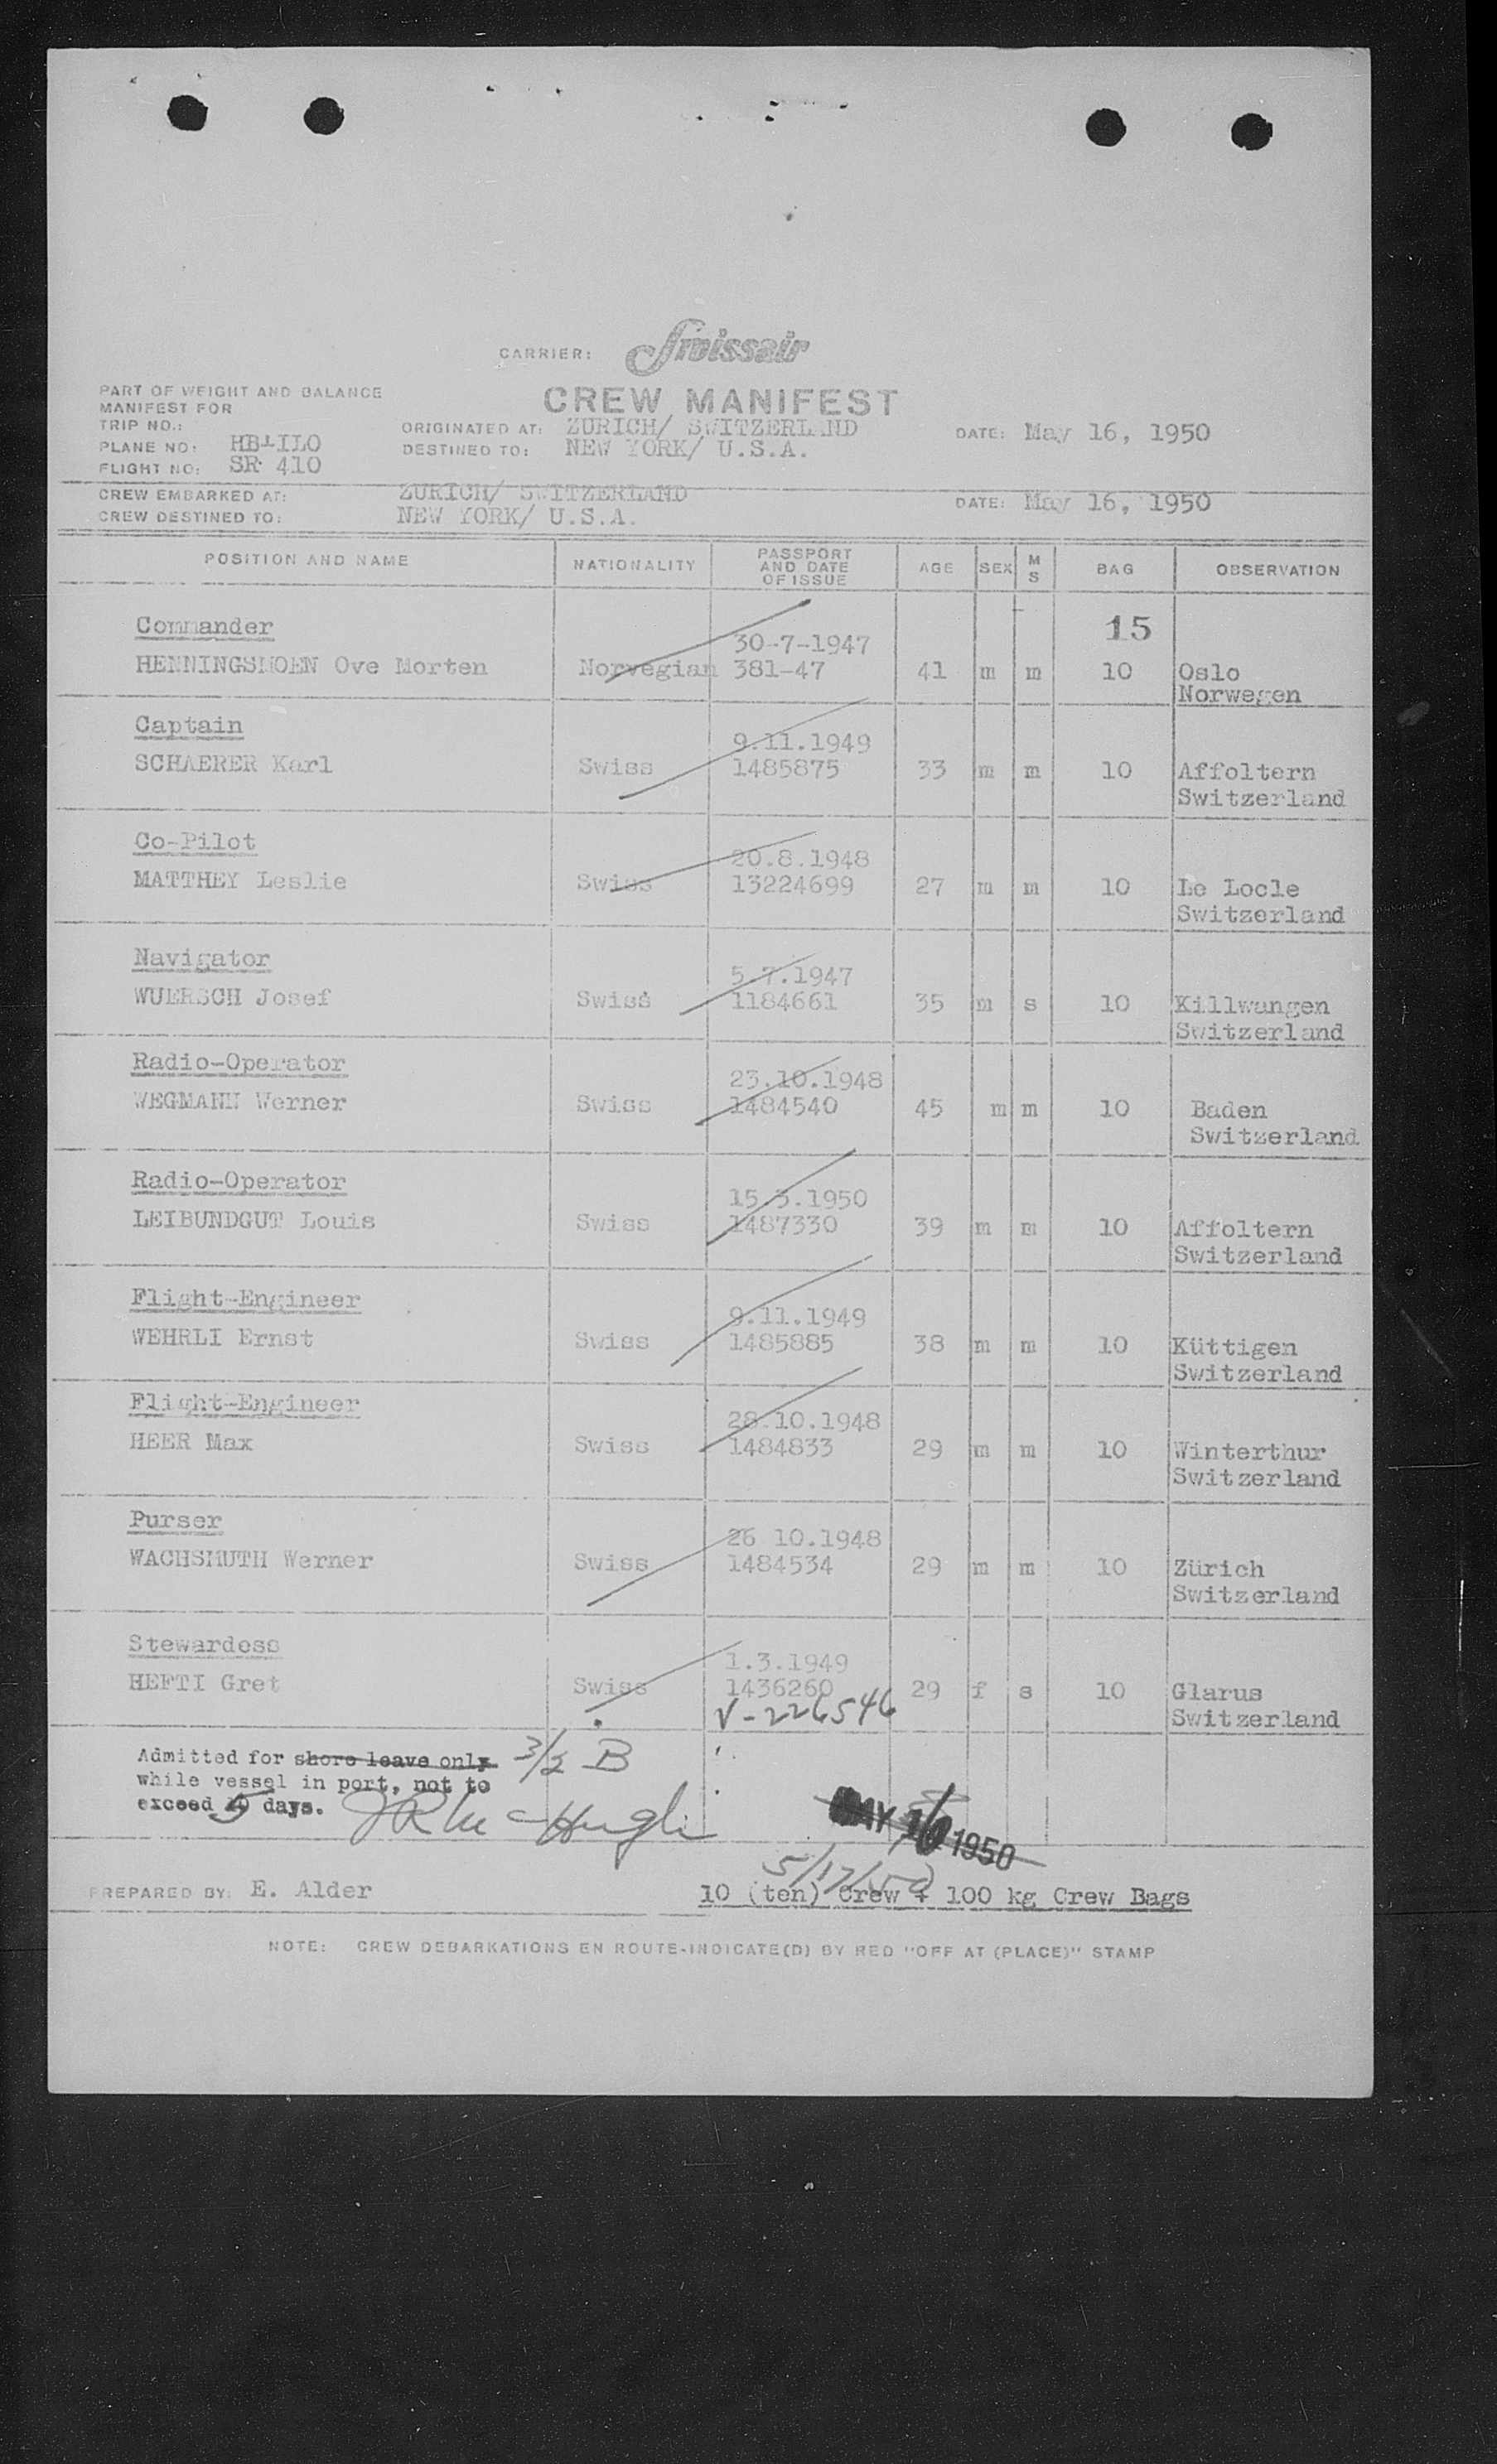 CARRIER: Swissair
PART OF WEIGHT AND BALANCE
MANIFEST FOR
CREW MANIFEST
TRIP NO.:
ORIGINATED AT: ZURICH/ SWITZERLAND
DATE: May 16, 1950
PLANE NO: HB-ILO
DESTINED TO: NEW YORK/ U.S.A.
FLIGHT NO: SR 410
CREW EMBARKED AT: ZURICH/ SWITZERLAND
DATE: May 16, 1950
CREW DESTINED TO: NEW YORK/ U.S.A.
POSITION AND NAME NATIONALITY PASSPORT AND DATE OF ISSUE AGE SEX M S BAG OBSERVATION
Commander 15
30-7-1947
HENNINGSMOEN Ove Morten Norvegian 381-47 41 m m 10 Oslo
Norwegen
Captain
9.11.1949
SCHAERER Karl Swiss 1485875 33 m m 10 Affoltern
Switzerland
Co-Pilot
20.8.1948
MATTHEY Leslie Swiss 13224699 27 m m 10 Le Locle
Switzerland
Navigator
5.7.1947
WUERSCH Josef Swiss 1184661 35 m s 10 Killwangen
Switzerland
Radio-Operator
23.10.1948
WEGMANN Werner Swiss 1484540 45 m m 10 Baden
Switzerland
Radio-Operator
15.3.1950
LEIBUNDGUT Louis Swiss 1487330 39 m m 10 Affoltern
Switzerland
Flight-Engineer
9.11.1949
WEHRLI Ernst Swiss 1485885 38 m m 10 Küttigen
Switzerland
Flight-Engineer
28.10.1948
HEER Max Swiss 1484833 29 m m 10 Winterthur
Switzerland
Purser
26 10.1948
WACHSMUTH Werner Swiss 1484534 29 m m 10 Zürich
Switzerland
Stewardess
1.3.1949
HEFTI Gret Swiss 1436260 29 f s 10 Glarus
V-226546 Switzerland
Admitted for shore leave only 3/2 B
while vessel in port, not to
exceed 5 days.
MAY 1950
5/17/50
PREPARED BY: E. Alder
10 (ten) Crew + 100 kg Crew Bags
NOTE: CREW DEBARKATIONS EN ROUTE-INDICATE(D) BY RED "OFF AT (PLACE)" STAMP